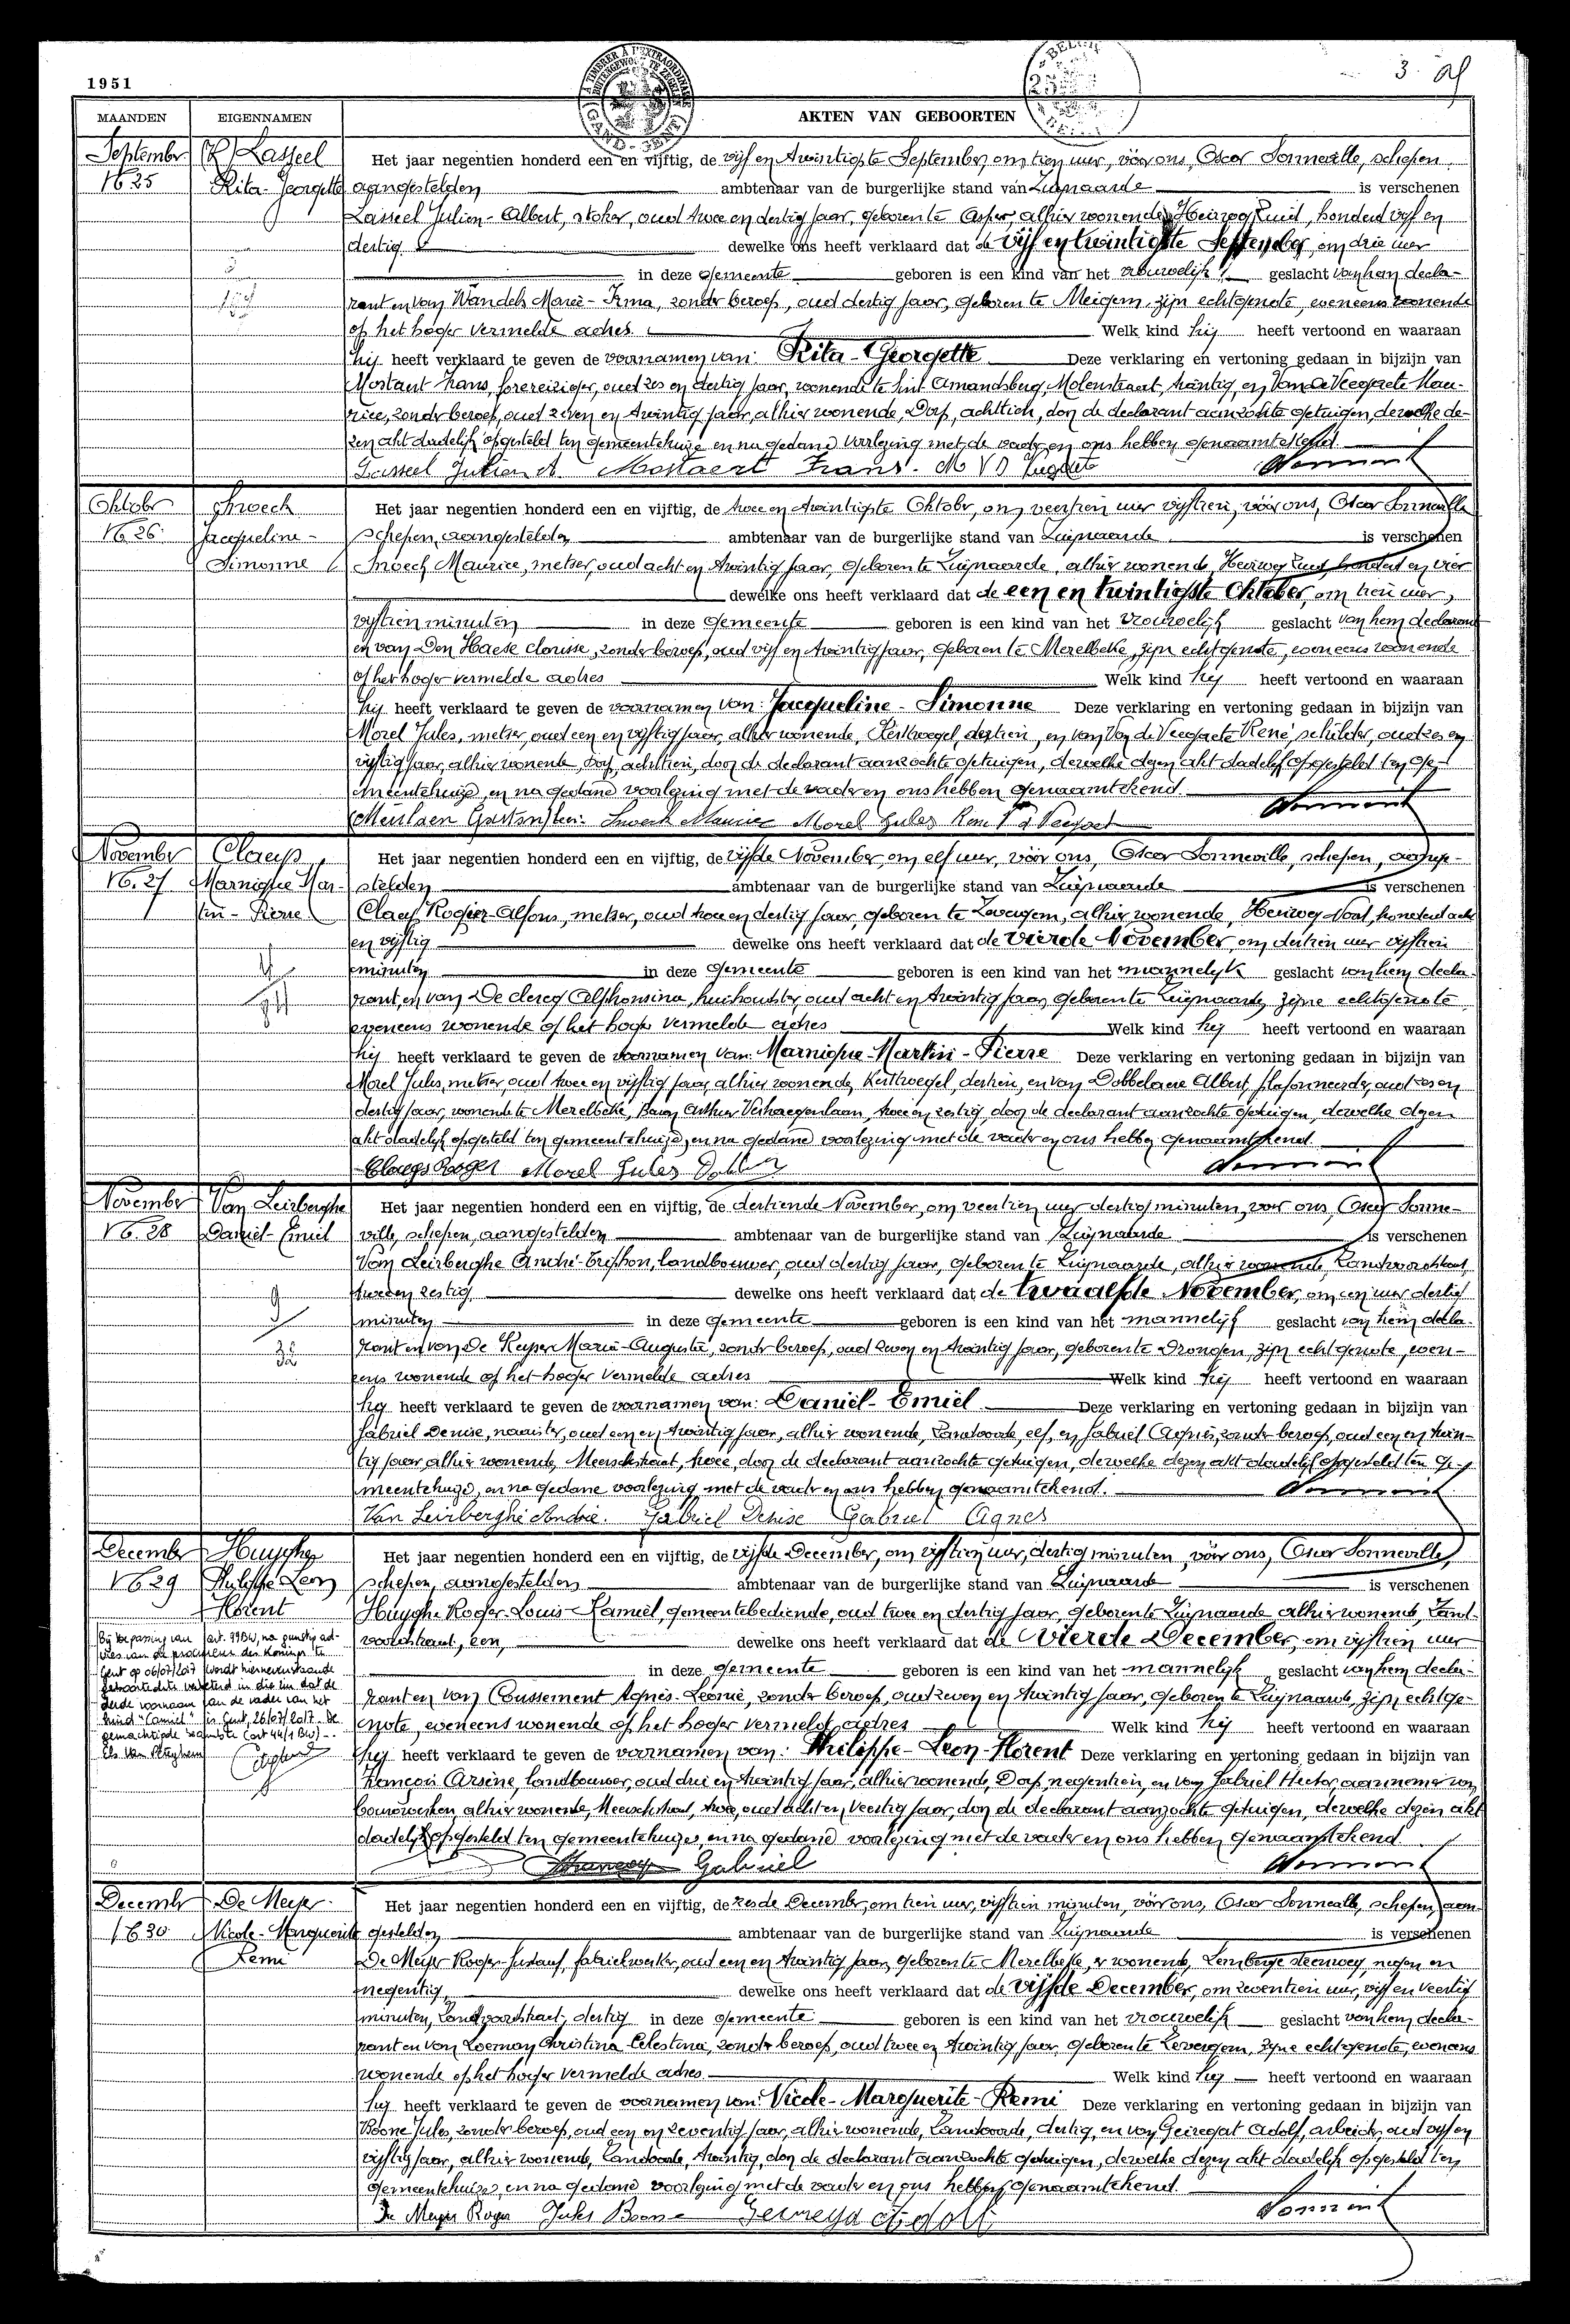 1951
3
À TIMBRER À L'EXTRAORDINAIRE
BUITENGEWOON TE ZEGELEN
(GAND - GENT)
MAANDEN
EIGENNAMEN
AKTEN VAN GEBOORTEN
September
N° 25
Lasseel
Rita-Georgette
Het jaar negentien honderd een en vijftig, de vijf en twintigste September, om tien uur, vóór ons, Oscar Sonneville, schepen
aangestelden ambtenaar van de burgerlijke stand van Zwijnaarde is verschenen
Lasseel Julien-Albert, stoker, oud twee en dertig jaar, geboren te Asper, alhier wonende, Heirweg Zuid, honderd vijf en
dertig dewelke ons heeft verklaard dat de vijf en twintigste September, om drie uur
in deze gemeente geboren is een kind van het vrouwelijk geslacht van hem decla-
rant en van Wandels Marie-Irma, zonder beroep, oud dertig jaar, geboren te Meigem, zijn echtgenote, eveneens wonende
op het hoger vermelde adres. Welk kind hij heeft vertoond en waaraan
hij heeft verklaard te geven de voornamen van: Rita-Georgette Deze verklaring en vertoning gedaan in bijzijn van
Mostaert Frans, oud zes en dertig jaar, wonende te Sint Amandsberg, Molenstraat, twintig, en Van de Veegaete Mau-
rice, zonder beroep, oud zeven en twintig jaar, alhier wonende, Dorp, achttien, door de declarant aanzochte getuigen, dewelke de-
zen akt dadelijk opgesteld ten gemeentehuize en na gedane voorlezing met de vader en ons hebben genaamtekend.
Lasseel Julien A. Mostaert Frans.
Oktober
N° 26
Snoeck
Jacqueline-
Simonne
Het jaar negentien honderd een en vijftig, de twee en twintigste Oktober, om veertien uur vijftien, vóór ons, Oscar Sonneville
schepen, aangestelden ambtenaar van de burgerlijke stand van Zwijnaarde is verschenen
Snoeck Maurice, metser, oud acht en twintig jaar, geboren te Zwijnaarde, alhier wonende, Heirweg Zuid, honderd en vier
dewelke ons heeft verklaard dat de een en twintigste Oktober, om tien uur,
vijftien minuten in deze gemeente geboren is een kind van het vrouwelijk geslacht van hem declarant
en van Den Haese Clarisse, zonder beroep, oud vijf en twintig jaar, geboren te Merelbeke, zijn echtgenote, eveneens wonende
op het hoger vermelde adres Welk kind hij heeft vertoond en waaraan
hij heeft verklaard te geven de voornamen van: Jacqueline-Simonne Deze verklaring en vertoning gedaan in bijzijn van
Morel Jules, metser, oud een en vijftig jaar, alhier wonende, Kerkwegel, dertien, en van Van de Veegaete René, schilder, oud zes en
vijftig jaar, alhier wonende, Dorp, achttien, door de declarant aanzochte getuigen, dewelke dezen akt dadelijk opgesteld ten ge-
meentehuize, en na gedane voorlezing met de vader en ons hebben genaamtekend.
Snoeck Maurice Morel Jules
November
N° 27
Claeys
Marnique Mar-
tin-Pierre
Het jaar negentien honderd een en vijftig, de vijfde November, om elf uur, vóór ons, Oscar Sonneville, schepen, aange-
stelden ambtenaar van de burgerlijke stand van Zwijnaarde is verschenen
Claeys Rogier-Alfons, metser, oud twee en dertig jaar, geboren te Zevergem, alhier wonende, Heirweg Noord, honderd acht
en vijftig dewelke ons heeft verklaard dat de vierde November, om dertien uur vijftien
minuten in deze gemeente geboren is een kind van het mannelijk geslacht van hem decla-
rant, en van De clercq Alphonsina, huishoudster, oud acht en twintig jaar, geboren te Zwijnaarde, zijne echtgenote,
eveneens wonende op het hoger vermelde adres Welk kind hij heeft vertoond en waaraan
hij heeft verklaard te geven de voornamen van: Marnique-Martin-Pierre Deze verklaring en vertoning gedaan in bijzijn van
Morel Jules, metser, oud twee en vijftig jaar, alhier wonende, Kerkwegel, dertien, en van Dobbelaere Albert, plafonneerder, oud zes en
dertig jaar, wonende te Merelbeke, Baron Arthur Verhaegenlaan, twee en zestig, door de declarant aanzochte getuigen, dewelke dezen
akt dadelijk opgesteld ten gemeentehuize, en na gedane voorlezing met de vader en ons hebben genaamtekend.
Claeys Roger Morel Jules
November
N° 28
Van Leirberghe
Daniël-Emiel
Het jaar negentien honderd een en vijftig, de dertiende November, om veertien uur dertig minuten, voor ons, Oscar Sonne-
ville, schepen, aangestelden ambtenaar van de burgerlijke stand van Zwijnaarde is verschenen
Van Leirberghe André-Triphon, landbouwer, oud dertig jaar, geboren te Zwijnaarde, alhier wonende, Zandvoordestraat,
twee en zestig dewelke ons heeft verklaard dat de twaalfde November, om een uur dertig
minuten in deze gemeente geboren is een kind van het mannelijk geslacht van hem decla-
rant en van De Keyser Maria-Augusta, zonder beroep, oud zeven en twintig jaar, geboren te Drongen, zijn echtgenote, even-
eens wonende op het hoger vermelde adres Welk kind hij heeft vertoond en waaraan
hij heeft verklaard te geven de voornamen van: Daniël-Emiel Deze verklaring en vertoning gedaan in bijzijn van
Gabriel Denise, naaister, oud een en twintig jaar, alhier wonende, Zandvoorde, elf, en Gabriel Agnes, zonder beroep, oud een en twin-
tig jaar, alhier wonende, Meerschstraat, twee, door de declarant aanzochte getuigen, dewelke dezen akt dadelijk opgesteld ten ge-
meentehuize, en na gedane voorlezing met de vader en ons hebben genaamtekend.
Van Leirberghe André. Gabriel Denise Gabriel Agnes
December
N° 29
Huyghe
Philippe Leon
Florent
Bij toepassing van art. 99 BW, na gunstig ad-
vies van de procureur des Konings te
Gent op 06/07/2017 wordt hiernevenstaande
geboorteakte verbeterd in die zin dat de
derde voornaam van de vader van het
kind "Camiel" is. Gent, 26/07/2017. De
gemachtigde beambte (art 44/1 BW)
Els Van Peteghem
Het jaar negentien honderd een en vijftig, de vijfde December, om vijftien uur, dertig minuten, vóór ons, Oscar Sonneville,
schepen, aangestelden ambtenaar van de burgerlijke stand van Zwijnaarde is verschenen
Huyghe Roger-Louis-Kamiel, gemeentebediende, oud twee en dertig jaar, geboren te Zwijnaarde, alhier wonende, Zand-
voordestraat, een, dewelke ons heeft verklaard dat de vierde December, om vijftien uur
in deze gemeente geboren is een kind van het mannelijk geslacht van hem decla-
rant en van Coussement Agnès-Leonie, zonder beroep, oud zeven en twintig jaar, geboren te Zwijnaarde, zijn echtge-
note, eveneens wonende op het hoger vermeld adres Welk kind hij heeft vertoond en waaraan
hij heeft verklaard te geven de voornamen van: Philippe-Leon-Florent Deze verklaring en vertoning gedaan in bijzijn van
François Arsène, landbouwer, oud drie en twintig jaar, alhier wonende, Dorp, negentien, en van Gabriel Hector, aannemer van
bouwwerken, alhier wonende, Meerschstraat, twee, oud acht en veertig jaar, door de declarant aanzochte getuigen, dewelke dezen akt
dadelijk opgesteld ten gemeentehuize, en na gedane voorlezing met de vader en ons hebben genaamtekend.
Gabriel
December
N° 30
De Meyer
Nicole-Marguerite
Remi
Het jaar negentien honderd een en vijftig, de zesde December, om tien uur, vijftien minuten, vóór ons, Oscar Sonneville, schepen, aan-
gestelden ambtenaar van de burgerlijke stand van Zwijnaarde is verschenen
De Meyer Roger-Gustaaf, fabriekwerker, oud een en twintig jaar, geboren te Merelbeke, er wonende, Lembergse steenweg, negen en
negentig, dewelke ons heeft verklaard dat de vijfde December, om zeventien uur, vijf en veertig
minuten, Zandvoordestraat, dertig in deze gemeente geboren is een kind van het vrouwelijk geslacht van hem decla-
rant en van Christina Celestina, zonder beroep, oud twee en twintig jaar, geboren te Zevergem, zijne echtgenote, eveneens
wonende op het hoger vermelde adres Welk kind hij heeft vertoond en waaraan
hij heeft verklaard te geven de voornamen van: Nicole-Marguerite-Remi Deze verklaring en vertoning gedaan in bijzijn van
Boone Jules, zonder beroep, oud een en zeventig jaar, alhier wonende, Zandvoorde, dertig, en van Geiregat Adolf, arbeider, oud vijf en
vijftig jaar, alhier wonende, Zandvoorde, twintig, door de declarant aanzochte getuigen, dewelke dezen akt dadelijk opgesteld ten
gemeentehuize, en na gedane voorlezing met de vader en ons hebben genaamtekend.
De Meyer Roger Jules Boone Adolf